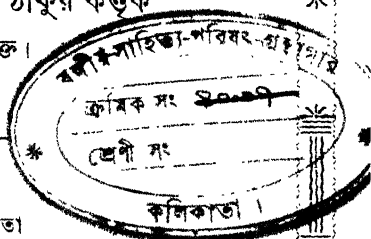 ঠাকুর কর্ত্তৃক
ক্ত।
বঙ্গীয়-সাহিত্য-পরিষৎ-গ্রন্থাগার
ক্রমিক সং
শ্রেণী সং
কলিকাতা।
তা